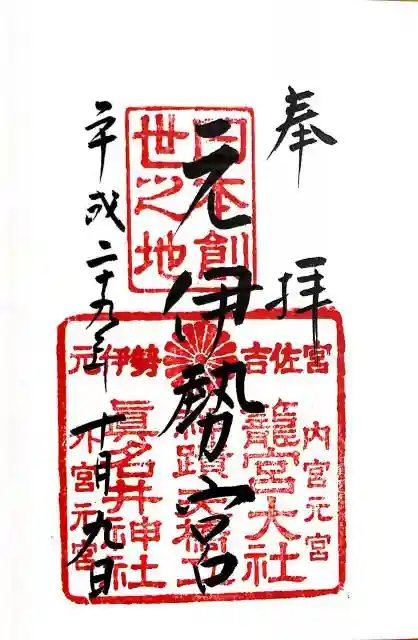 奉拝
元伊勢宮
平成二十九年十月九日
日本創
世之地
元伊勢 吉佐宮
内宮元宮
籠宮大社
眞名井神社
外宮元宮